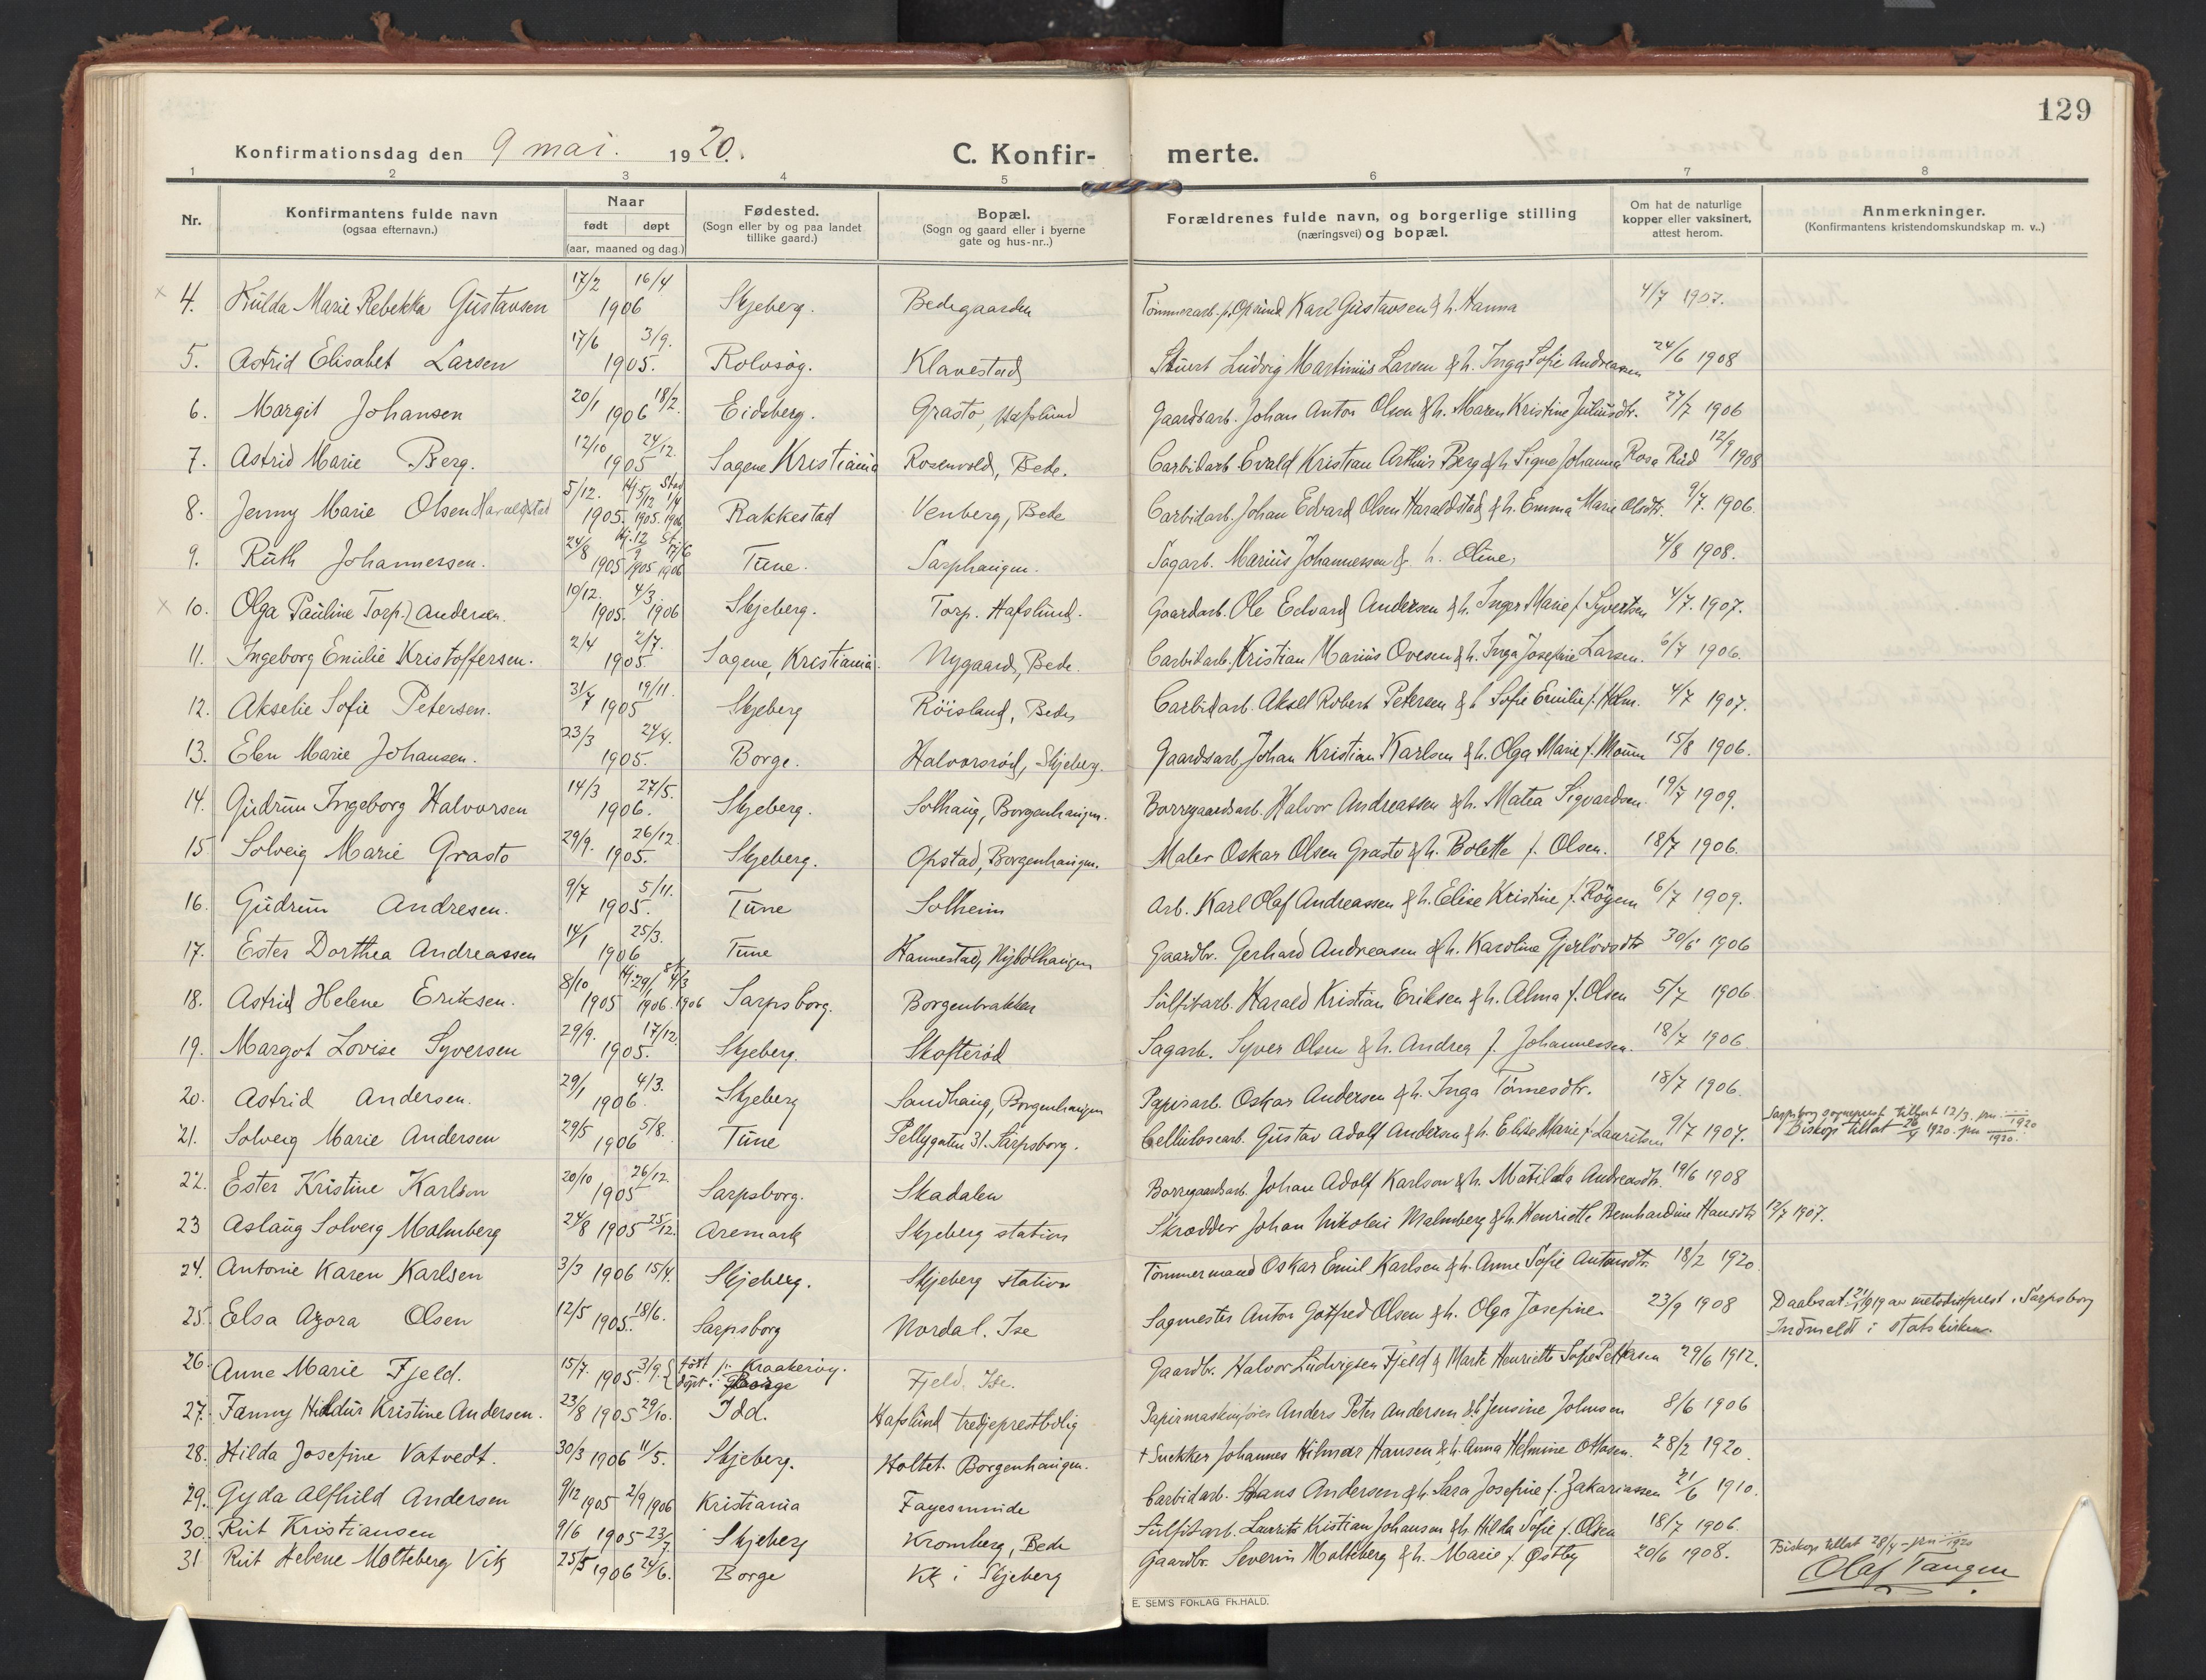 129
Konfirmationsdag den 9 mai. 1920.
C. Konfir- merte.
1 2 3 4 5 6 7 8
Nr.
Konfirmantens fulde navn
(ogsaa efternavn.)
Naar
født døpt
(aar, maaned og dag.)
Fødested.
(Sogn eller by og paa landet
tillike gaard.)
Bopæl.
(Sogn og gaard eller i byerne
gate og hus-nr..)
Forældrenes fulde navn, og borgerlige stilling
(næringsvei) og bopæl.
Om hat de naturlige
kopper eller vaksinert,
attest herom.
Anmerkninger.
(Konfirmantens kristendomskundskap m. v..)
x 4. Hulda Marie Rebekka Gustavsen 17/2 16/4 1906 Skjeberg. Bedegaarden Tømmerarb. Karl Gustavsen & h. Hanna 4/7 1907.
5. Astrid Elisabet Larsen 17/6 3/9. 1905. Rolvsøg. Klavestad Stuert Ludvig Martinius Larsen & h. Inga Sofie Andreasen 24/6 1908
6. Margit Johansen 20/1 1906 18/2. Eidsberg. Grasto, Hafslund Gaardsarb. Johan Anton Olsen & h. Maren Kristine Juliusdtr. 27/7 1906
7. Astrid Marie Berg. 12/10 24/12. 1905 Sagene Kristiania Rosenvold, Bede. Carbidarb. Evald Kristian Arthur Berg & h. Signe Johanna Rosa Rud 12/9 1908
8. Jenny Marie Olsen Haraldstad 5/12. 1905. Hj. 5/12 1905. Stad 1/4 1906 Rakkestad Venberg, Bede Carbidarb. Johan Edvard Olsen Haraldstad & h. Emma Marie Olsdtr. 9/7. 1906.
9. Ruth Johannessen. 24/8 1905 1905 17/6 1906 Tune. Sarphaugen. Sagarb. Marius Johannessen & h. Oline, 4/8 1908.
x 10. Olga Pauline Torp.) Andersen. 10/12. 1905. 4/3 1906 Skjeberg. Torp. Hafslund. Gaardarb. Ole Edvard Andersen & h. Inger Marie f. Syvertsen 4/7. 1907.
11. Ingeborg Emilie Kristoffersen. 2/4 2/7. 1905 Sagene, Kristiania. Nygaard, Bede. Carbidarb. Kristian Marius Ovesen & h. Inga Josefine Larsen. 6/7 1906.
12. Akselie Sofie Petersen. 31/7 1905 19/11. Skjeberg Röisland, Bede, Carbidarb. Aksel Robert Petersen & h Sofie Emilie f. Holm. 4/7 1907.
13. Elen Marie Johansen. 23/3 24/4. 1905. Borge. Halvorsrød, Skjeberg. Gaardsarb. Johan Kristian Karlsen & h. Olga Marie f. Moum 15/8 1906.
14. Gudrun Ingeborg Halvorsen 14/3 27/5. 1906. Skjeberg. Solhaug, Borgenhaugen. Borregaardsarb. Halvor Andreassen & h. Matea Sigvardsen 19/7 1909.
15 Solveig Marie Grasto 29/9. 26/12 1905. Skjeberg. Opstad, Borgenhaugen. Maler Oskar Olsen Grasto & h. Bolette f. Olsen. 18/7 1906.
16. Gudrun Andresen. 9/7 5/11. 1905. Tune Solheim Arb. Karl Olaf Andreassen & h. Elise Kristine f. Röyem 6/7 1909.
17. Ester Dorthea Andreassen 14/1 25/3. 1906 Tune Hannestad, Nybölhaugen Gaardbr. Gerhard Andreasen & h. Karoline 30/6 1906
18. Astrid Helene Eriksen. 8/10 1905 Hj. 29/1 1906. 4/3 1906 Sarpsborg. Borgenbrakken Sulfitarb. Harald Kristian Eriksen & h. Alma f. Olsen 5/7 1906
19. Margot Lovise Syversen 29/9. 17/12. 1905. Skjeberg. Skofteröd Sagarb. Syver Olsen & h. Andrea f. Johannessen. 18/7 1906.
20. Astrid Andersen. 29/1 4/3. 1906. Skjeberg Sandhaug, Borgenhaugen Papirarb. Oskar Andersen & h. Inga Tönnesdtr. 18/7 1906.
21. Solveig Marie Andersen 29/5 1906 5/8. Tune Pellygaten 31. Sarpsborg. Cellulosearb. Gustav Adolf Andersen & h. Elise Marie f. Lauritsen 9/7 1907. Sarpsborg sogneprest tillatt 12/3. 1920
Biskop tillat 26/4 1920. 1920.
22. Ester Kristine Karlson 20/10 26/12. 1905 Sarpsborg. Skadalen Borregaardsarb. Johan Adolf Karlson & h. Matilda Andreasdtr. 19/6 1908
23 Aslaug Solveig Malmberg 24/8 1905 25/12. Aremark Skjeberg station Skrædder Johan Nikolai Malmberg & h. Henriette Bernhardine Hansdtr 12/7 1907.
24. Antonie Karen Karlsen 3/3 1906 15/4. Skjeberg. Skjeberg station Tömmermand Oskar Emil Karlsen & h. Anne Sofie Antonsdtr. 18/2 1920.
25. Elsa Azora Olsen 12/5 1905. 18/6. Sarpsborg Nordal. Ise Sagmester Anton Gotfred Olsen & h. Olga Josefine 23/9 1908 Daabsat. 21/1 1919 av metodistprest i Sarpsborg
Indmeldt i statskirken.
26. Anne Marie Fjeld. 15/7. 1905. 3/9. { født i Kraakerøy. døpt i Borge Fjeld. Ise. Gaardbr. Halvor Ludvigsen Fjeld & Marte Henriette Sofie Pettersen 29/6 1912.
27. Fanny Hildur Kristine Andersen. 23/8 1905 29/10. Idd. Hafslund tredjeprestbolig Papirmaskinfører Anders Peter Andersen & h Jensine Johnsen 8/6 1906
28. Hilda Josefine Vatvedt. 30/3 1906 11/5. Skjeberg. Holtet. Borgenhaugen. + Snekker Johannes Hilmar Hansen & h. Anna Helmine Ottosen. 28/2 1920.
29. Gyda Alfhild Andersen 9/12 1905 2/9 1906 Kristiania Fayesminde Carbidarb. Hans Andersen & h. Sara Josefine f. Zakariassen 21/6 1910.
30. Rut Kristiansen 9/6 1905 23/7 Skjeberg Kromberg, Bede Sulfitarb. Laurits Kristian Johansen & h. Hilda Sofie f. Olsen 18/7 1906.
31 Rut Helene Molteberg Vik 25/5 1906 24/6. Borge Vik i Skjeberg Gaardbr. Severin Molteberg & h. Marie f. Østby 20/6 1908. Biskop tillat 28/4 - 1920
Olaf Tangen
E. SEM'S FORLAG FR.HALD.